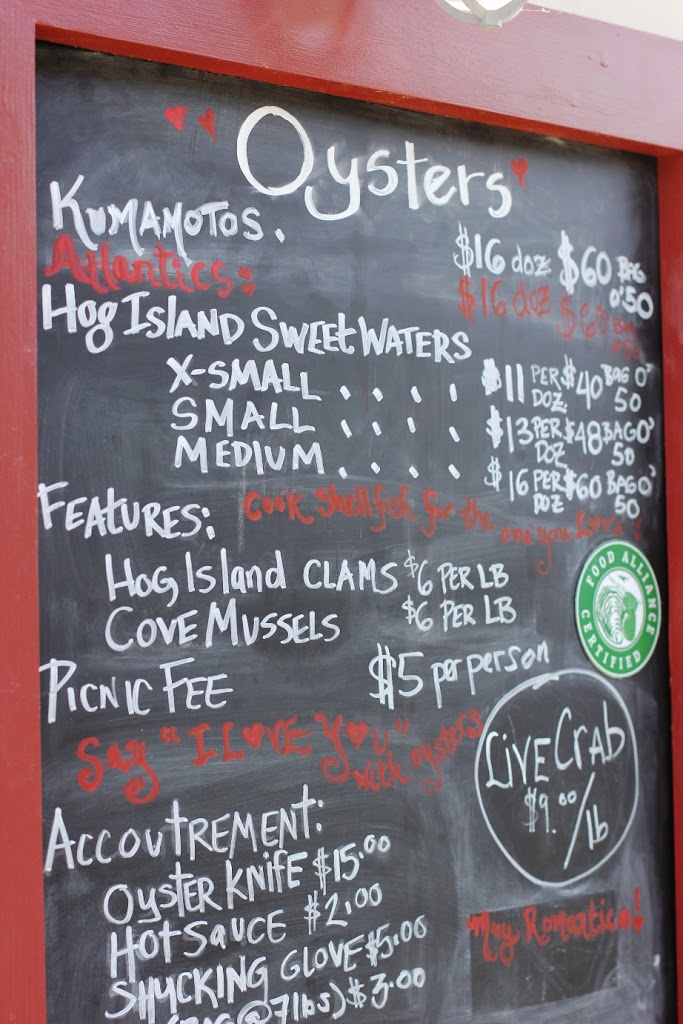 Oysters
KUMAMOTOS. $16 doz $60 BAG O'50
Atlantics: $16 doz $60 BAG O'50
Hog ISLAND SWEET WATERS
X-SMALL . . . . $11 PER DOZ. $40 BAG O' 50
SMALL . . . . $13 PER DOZ $48 BAG O' 50
MEDIUM . . . . $16 PER DOZ $60 BAG O' 50
FEATURES: Cook Shellfish for the one you love!
Hog Island CLAMS $6 PER LB
COVE MUSSELS $6 PER LB
FOOD ALLIANCE
CERTIFIED
PICNIC FEE $5 per person
Say "I LOVE YOU" with oysters
LIVE CRAB
$9.00/lb
ACCOUTREMENT:
OYSTER KNIFE $15.00
HOT SAUCE $2.00
SHUCKING GLOVE $5.00
May Romantico!
@ 7lbs) $3.00